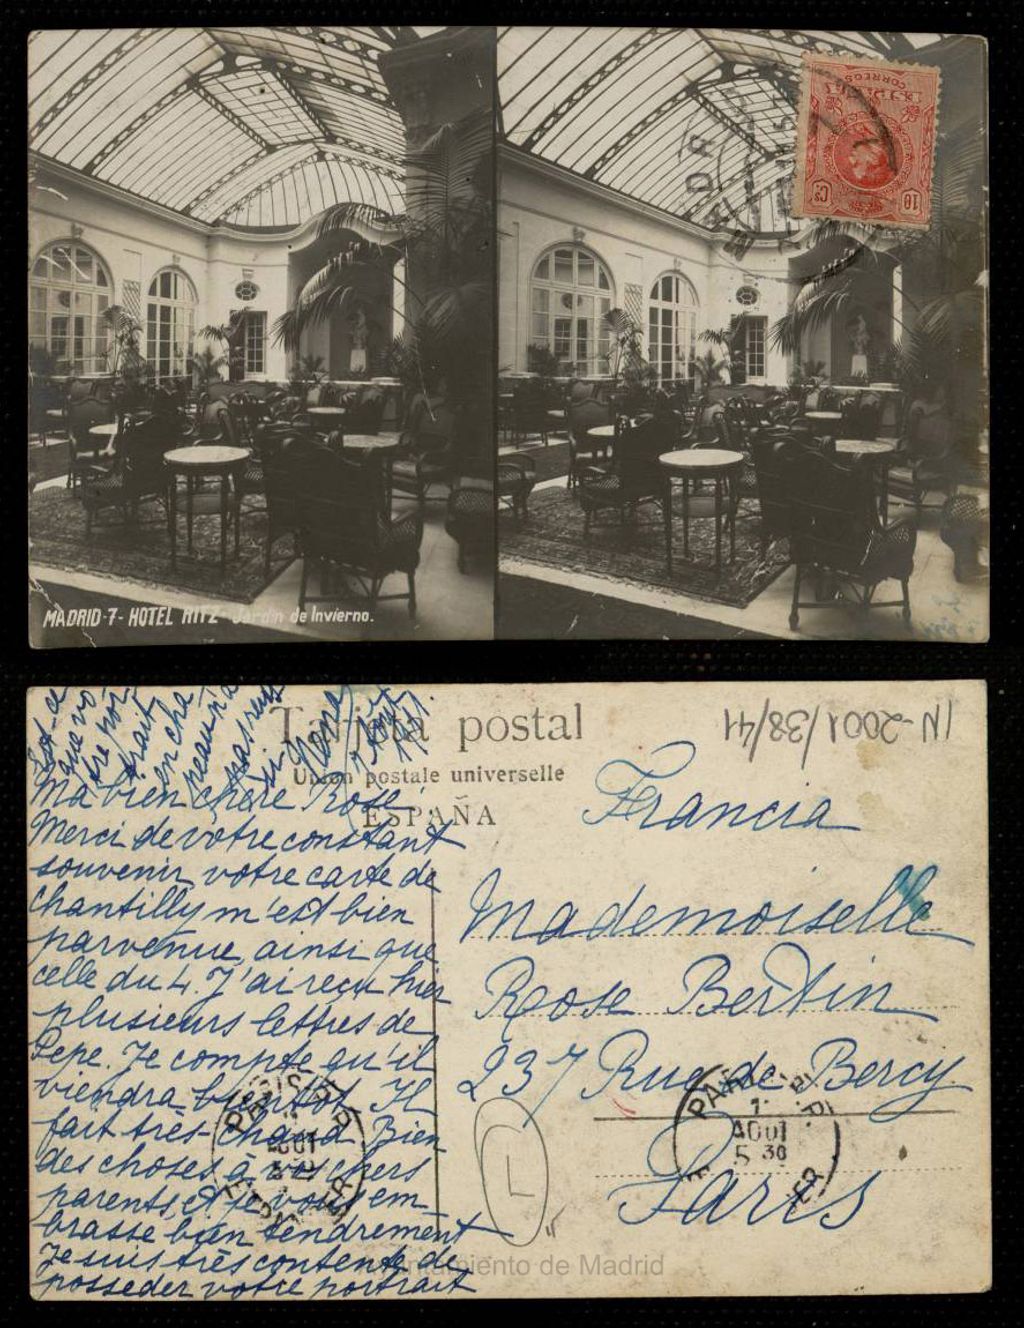 MADRID-7-HOTEL RITZ- Jardin de Invierno.
CORREOS
10 Cs
Tarjeta postal
Unión postale universelle
ESPAÑA
IN-2001/38/41
Francia
Mademoiselle
Rose Bertin
237 Rue de Bercy
Paris
Ma bien chère Rose,
Merci de vôtre constant
souvenir, votre carte de
Chantilly m'est bien
parvenue, ainsi que
celle du 4. J'ai reçu hier
plusieurs lettres de
Pepe. Je compte qu'il
viendra bientôt. Il
fait très-chaud. Bien
des choses à vos chers
parents, et je vous em-
brasse bien tendrement
Je suis très contente de
posseder votre portrait
Est-ce
que vo
tre por
trait
en cha
peau n'a
pas reus
si
PARIS
AOUT
5 30
L
Ayuntamiento de Madrid